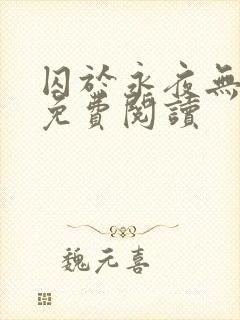 囚於永夜無
免費閱讀
魏元喜